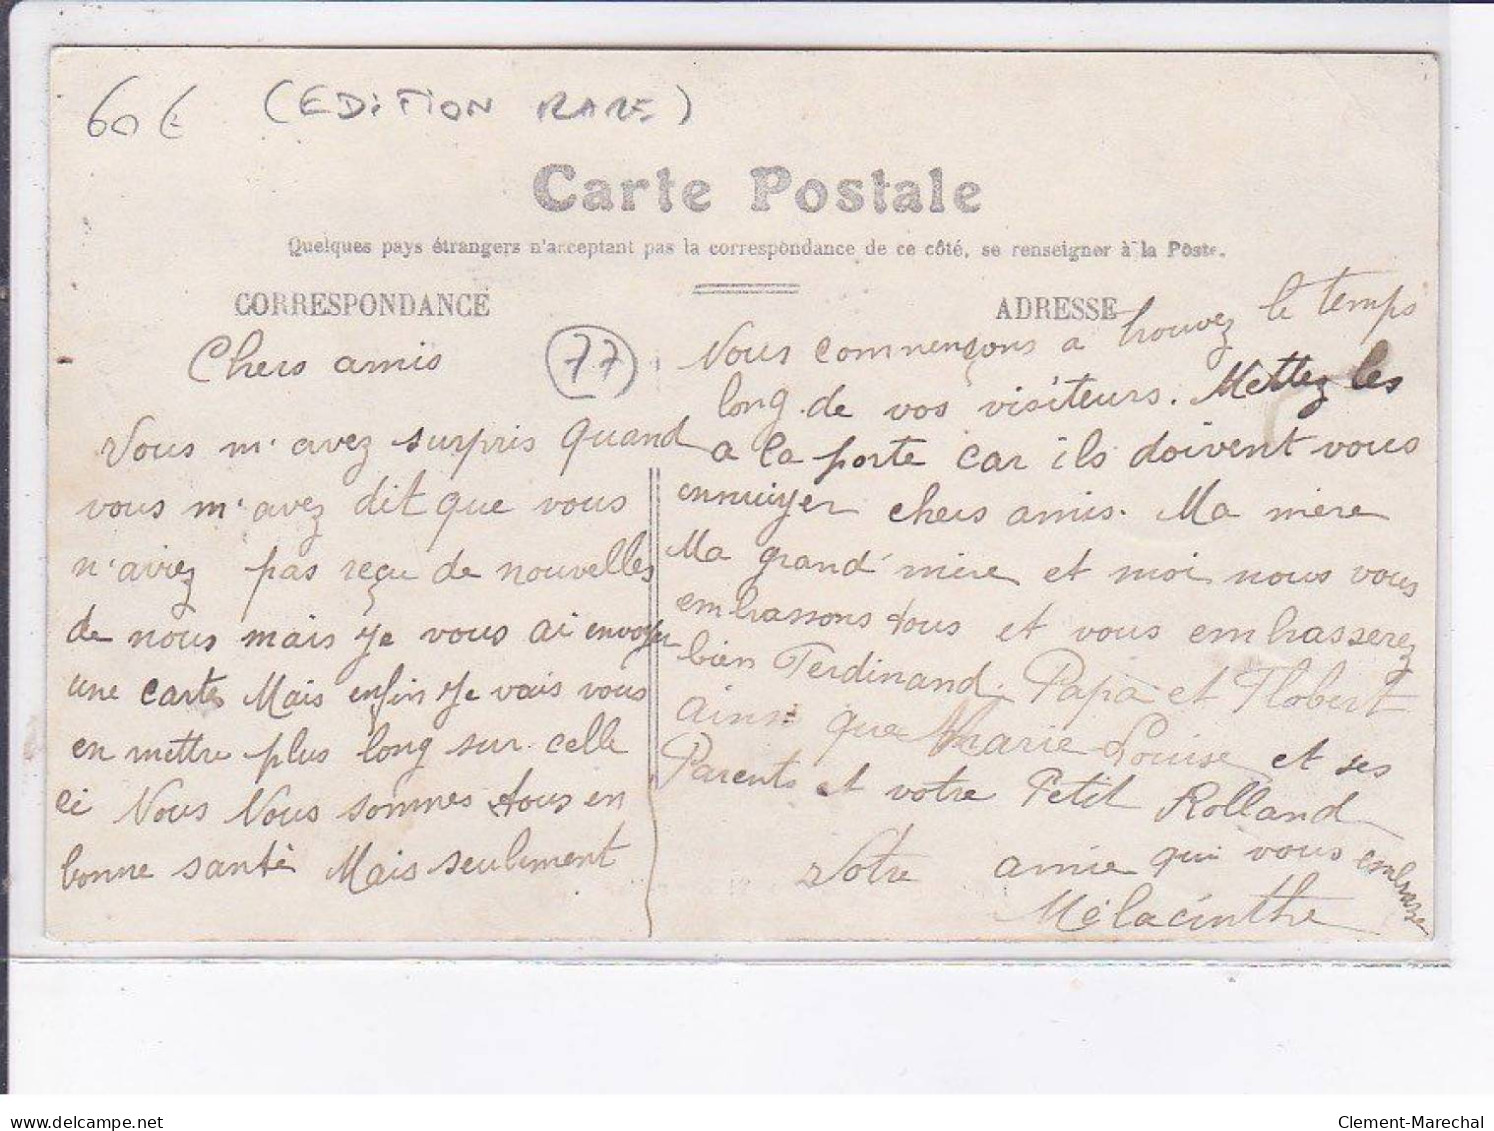 60€ (EDITION RARE)
Carte Postale
Quelques pays étrangers n'acceptant pas la correspondance de ce côté, se renseigner à la Poste.
CORRESPONDANCE
Chers amis
77
Vous m'avez surpris quand
vous m'avez dit que vous
n'aviez pas reçu de nouvelles
de nous mais je vous ai envoyer
une carte Mais enfin je vais vous
en mettre plus long sur celle
ci Nous Nous sommes tous en
bonne santé Mais seulement
ADRESSE
Nous commençons a trouvez le temps
long de vos visiteurs. Mettez les
a la porte car ils doivent vous
ennuiyer chers amis. Ma mère
Ma grand'mère et moi nous vous
embrassons tous et vous embrasserez
bien Ferdinand. Papa et Flobert
ainsi que Marie Louise et ses
Parents et votre Petit Rolland
Votre amie qui vous embrasse
Mélacinthe
delcampe.net
Clement-Marechal